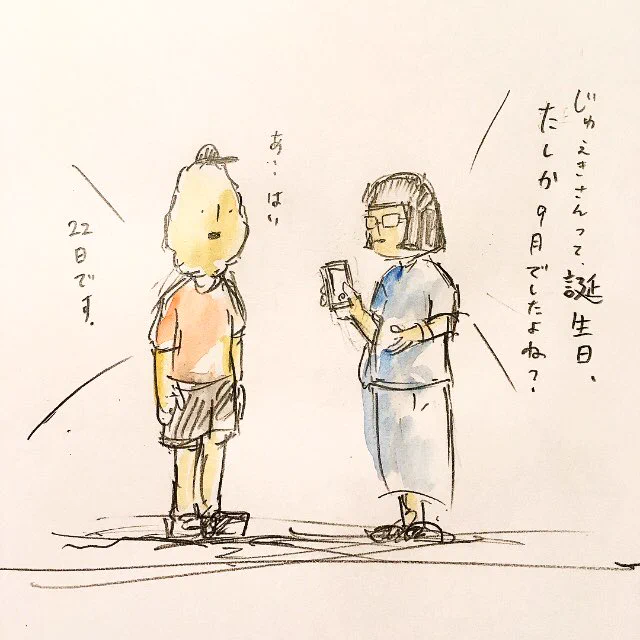 じゅえきさんって、誕生日、
たしか9月でしたよね？
あ… はい
22日です。